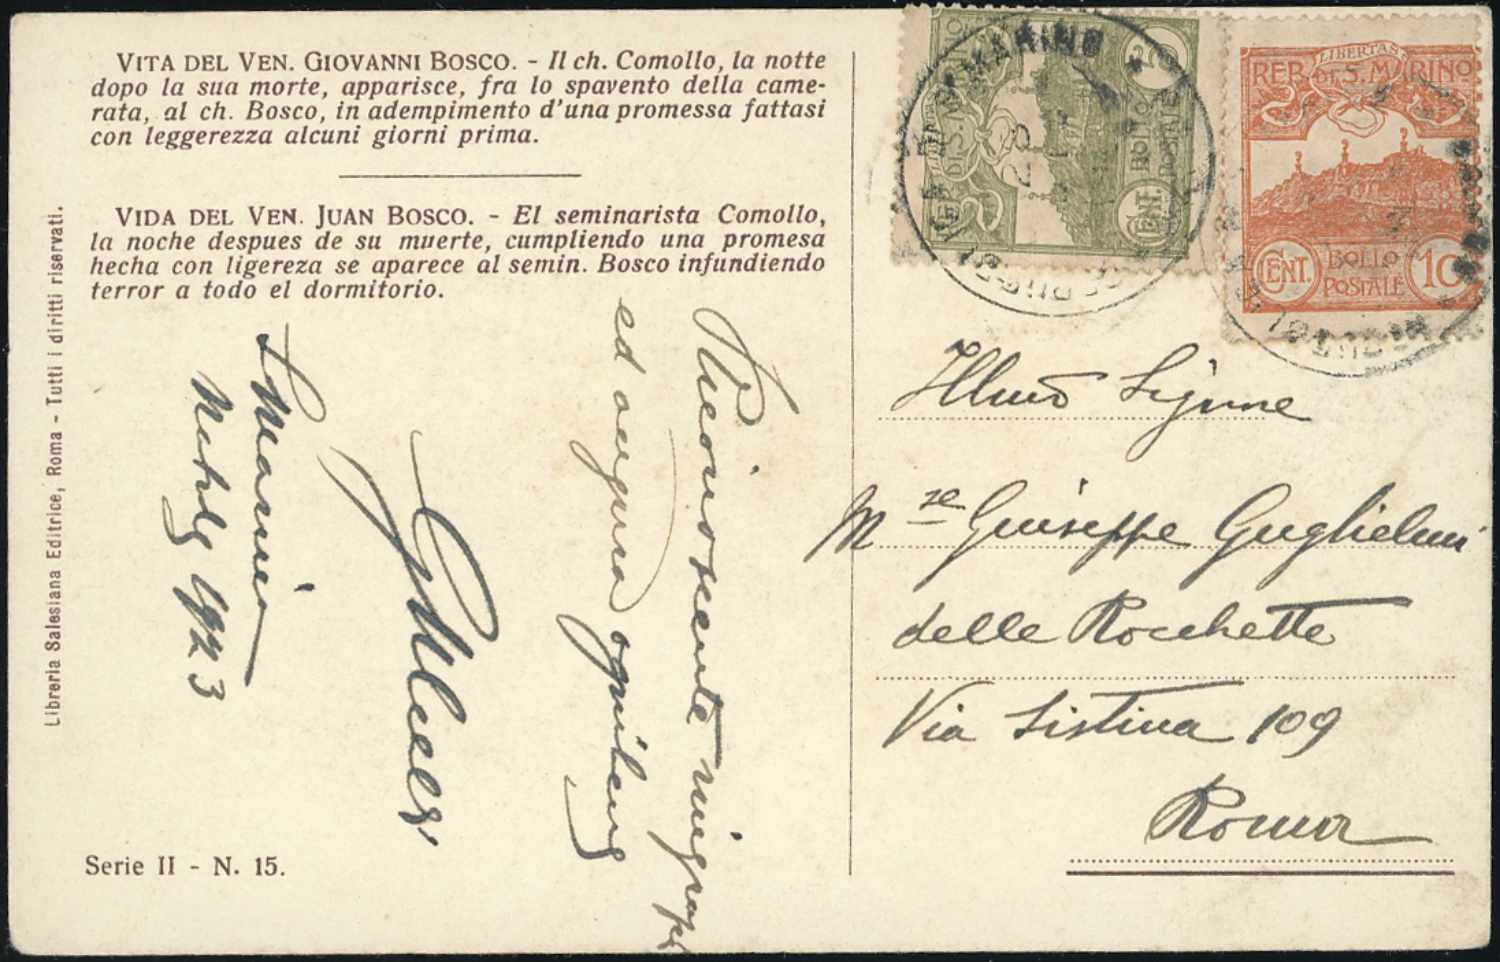 VITA DEL VEN. GIOVANNI BOSCO. - Il ch. Comollo, la notte
dopo la sua morte, apparisce, fra lo spavento della came-
rata, al ch. Bosco, in adempimento d'una promessa fattasi
con leggerezza alcuni giorni prima.
VIDA DEL VEN. JUAN BOSCO. - El seminarista Comollo,
la noche despues de su muerte, cumpliendo una promesa
hecha con ligereza se aparece al semin. Bosco infundiendo
terror a todo el dormitorio.
Libreria Salesiana Editrice, Roma - Tutti i diritti riservati.
Serie II - N. 15.
Riconoscente
ed augura ogni bene
S. Marino
1923
LIBERTAS
REP. DI S. MARINO
CENT. BOLLO POSTALE 5
LIBERTAS
REP. DI S. MARINO
CENT. BOLLO POSTALE 10
Illmo Signore
M.se Giuseppe Guglielmi
delle Rocchette
Via Sistina 109
Roma